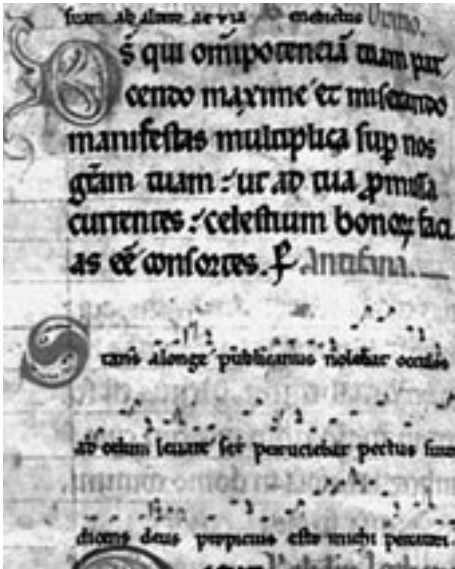 suam ab alme ac via benedictus Orino.
Ds qui om̅ipotencia̅ tuam par
cendo maxime et miserando
manifestas multiplica sup nos
gr̅am tuam : ut ad tua ꝓmissa
currentes : celestium bonoꝝ faci
as ee̅ consortes. ꝑ Antifana.
Stans alonge publicanus nolebat occulos
ad celum leuare set percuciebat pectus suum
dicens deus propicius esto michi peccatori